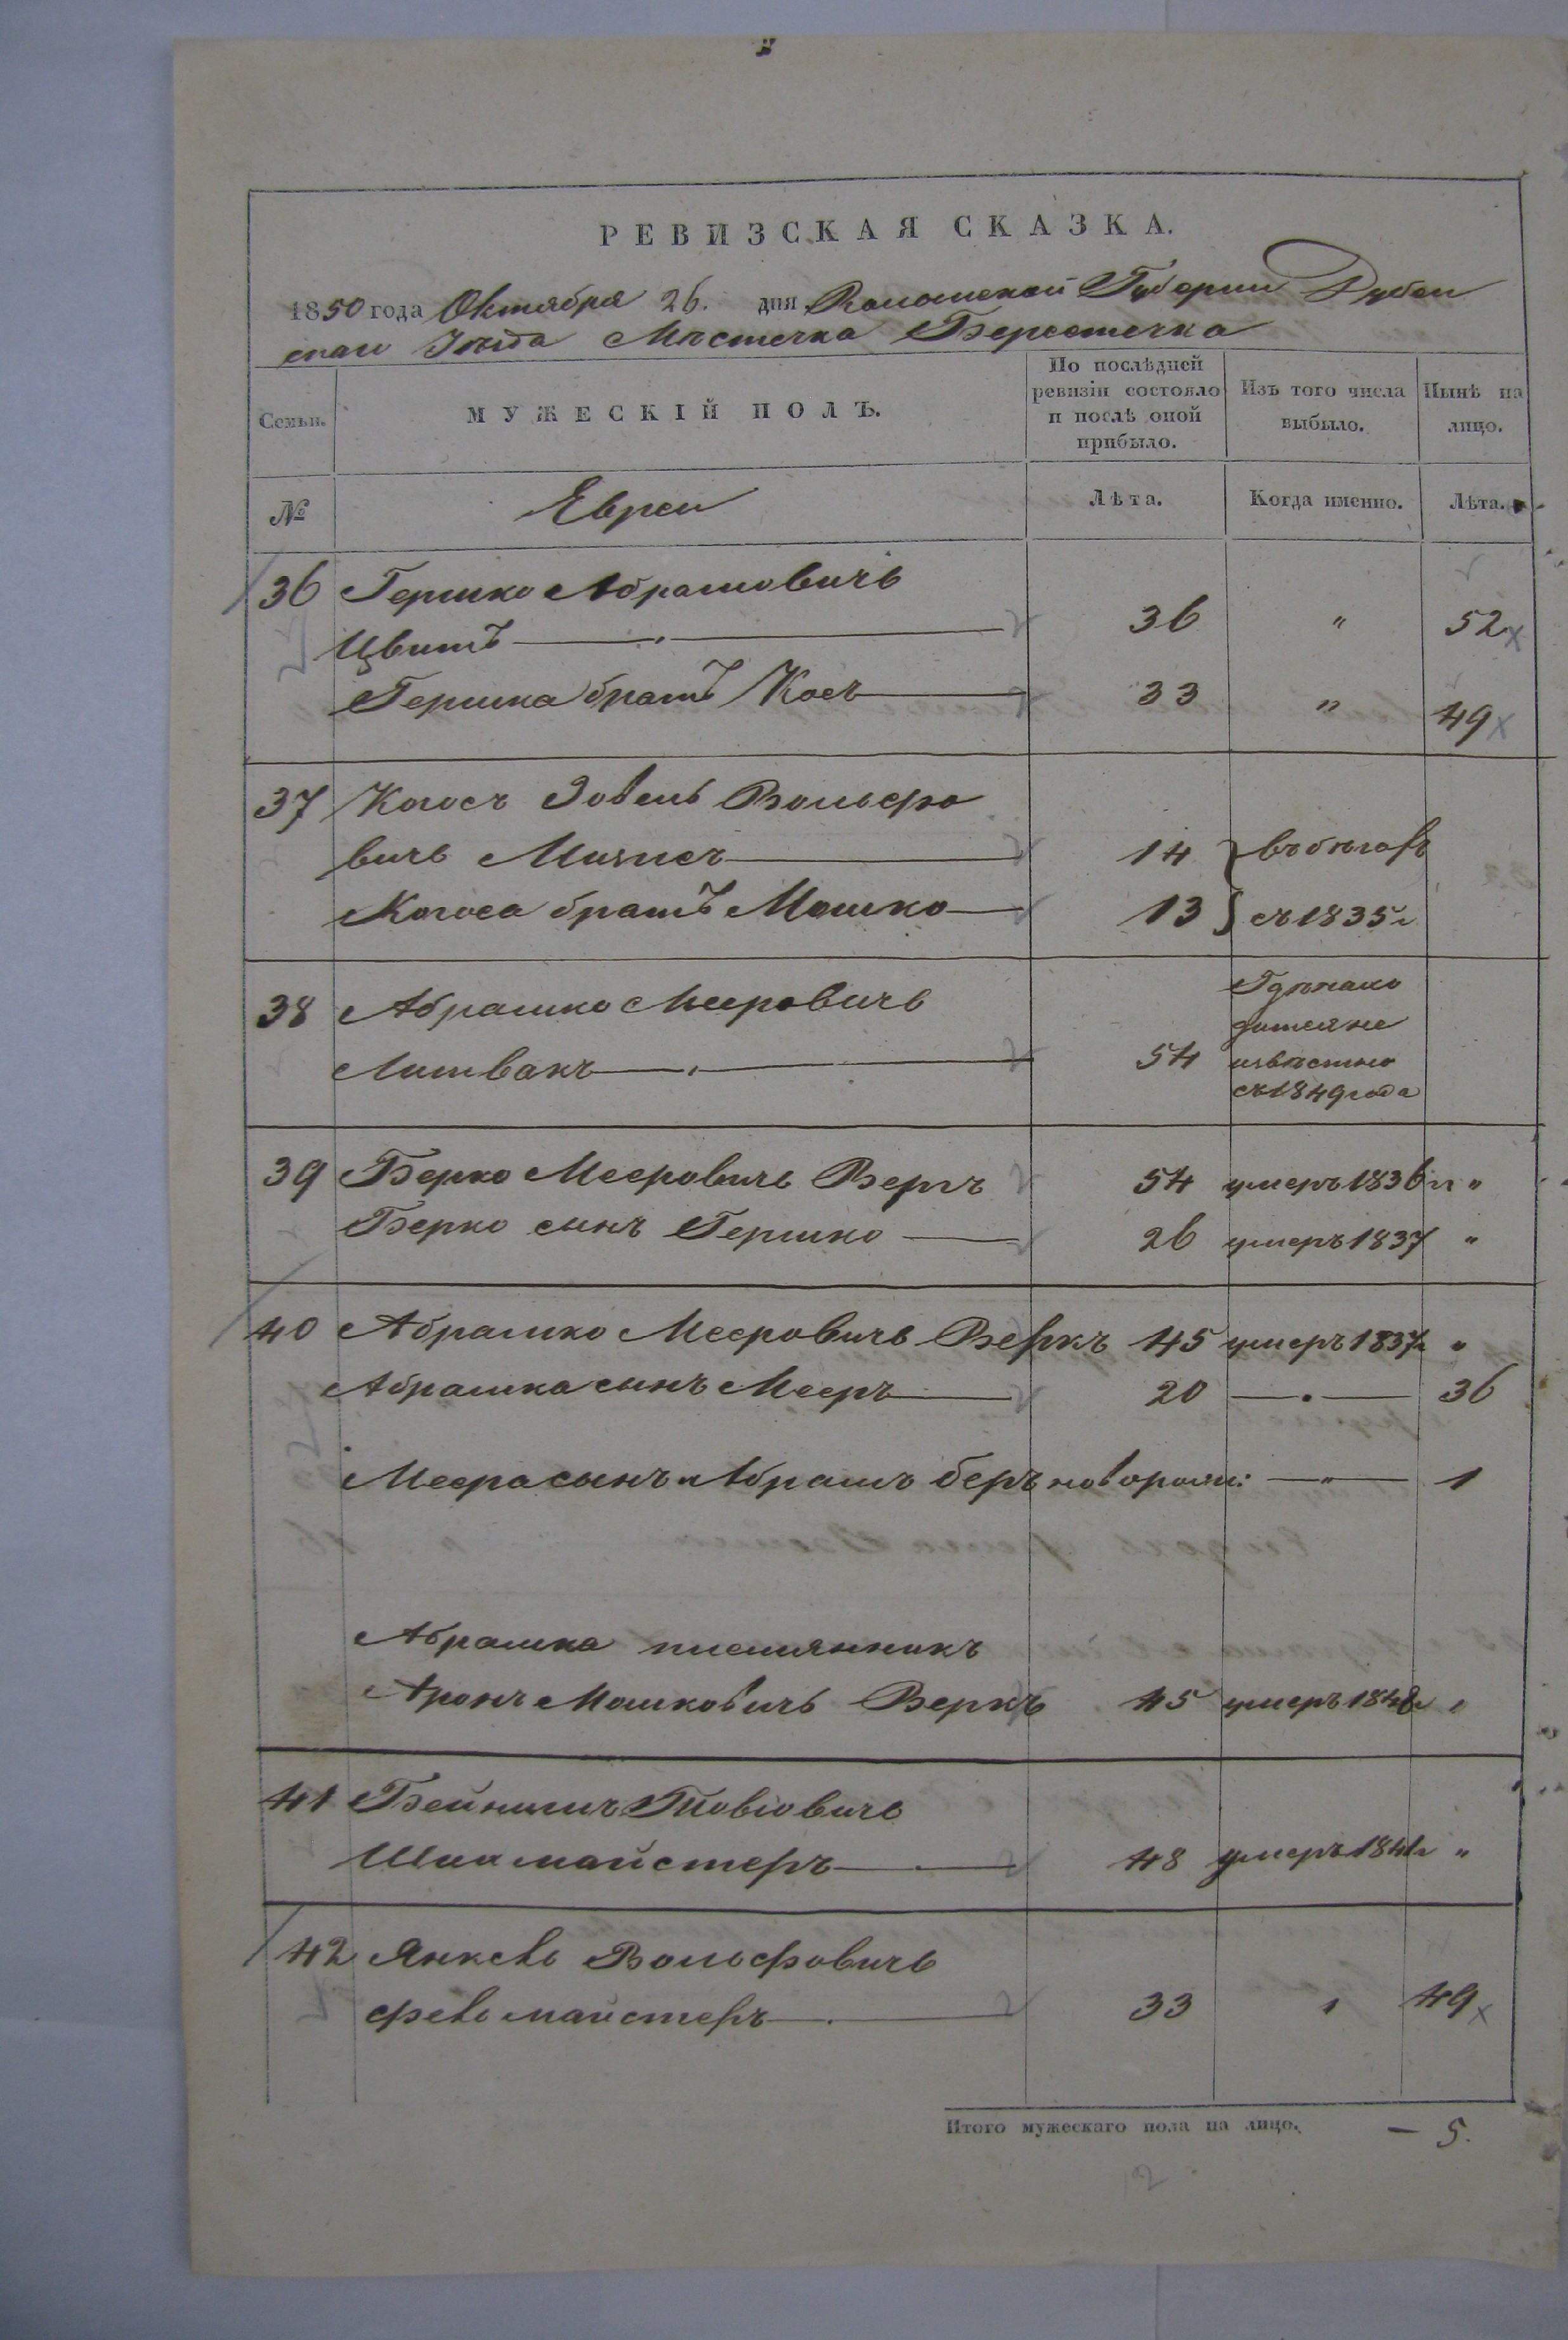 РЕВИЗСКАЯ СКАЗКА.
1850 года Октября 26. дня Волынской Губернии Дубен
скаго Уѣзда Мѣстечка Берестечка
Семьи.
МУЖЕСКІЙ ПОЛЪ.
По послѣдней ревизіи состояло и послѣ оной прибыло.
Изъ того числа выбыло.
Нынѣ на лицо.
№ Евреи Лѣта. Когда именно. Лѣта.
36 Гершко Абрамовичъ
Цвитъ 36 " 52
Гершка братъ Кос 33 " 49
37 Когосъ Зовель Вольфо
вичъ 14 въ бѣгахъ
Когоса братъ Мошко 13 съ 1835г
38 Абрашко Мееровичъ
Литвакъ 54
известно
съ 1849 года
39 Берко Мееровичъ Веркъ 54 умеръ 1836 г "
Берко сынъ Гершко 26 умеръ 1837 "
40 Абрашко Мееровичъ Веркъ 45 умеръ 1837г "
Абрашка сынъ Мееръ 20 — . — 36
Меера сынъ Абрамъ беръ новорож: — " — 1
Абрашка племянникъ
Аронъ Мошковичъ Веркъ 45 умеръ 1848г "
41 Бейнишъ Товіовичъ
майстеръ 48 умеръ 1841г "
42 Янкель Вольфовичъ
майстеръ 33 " 49
Итого мужескаго пола на лицо. — 5.